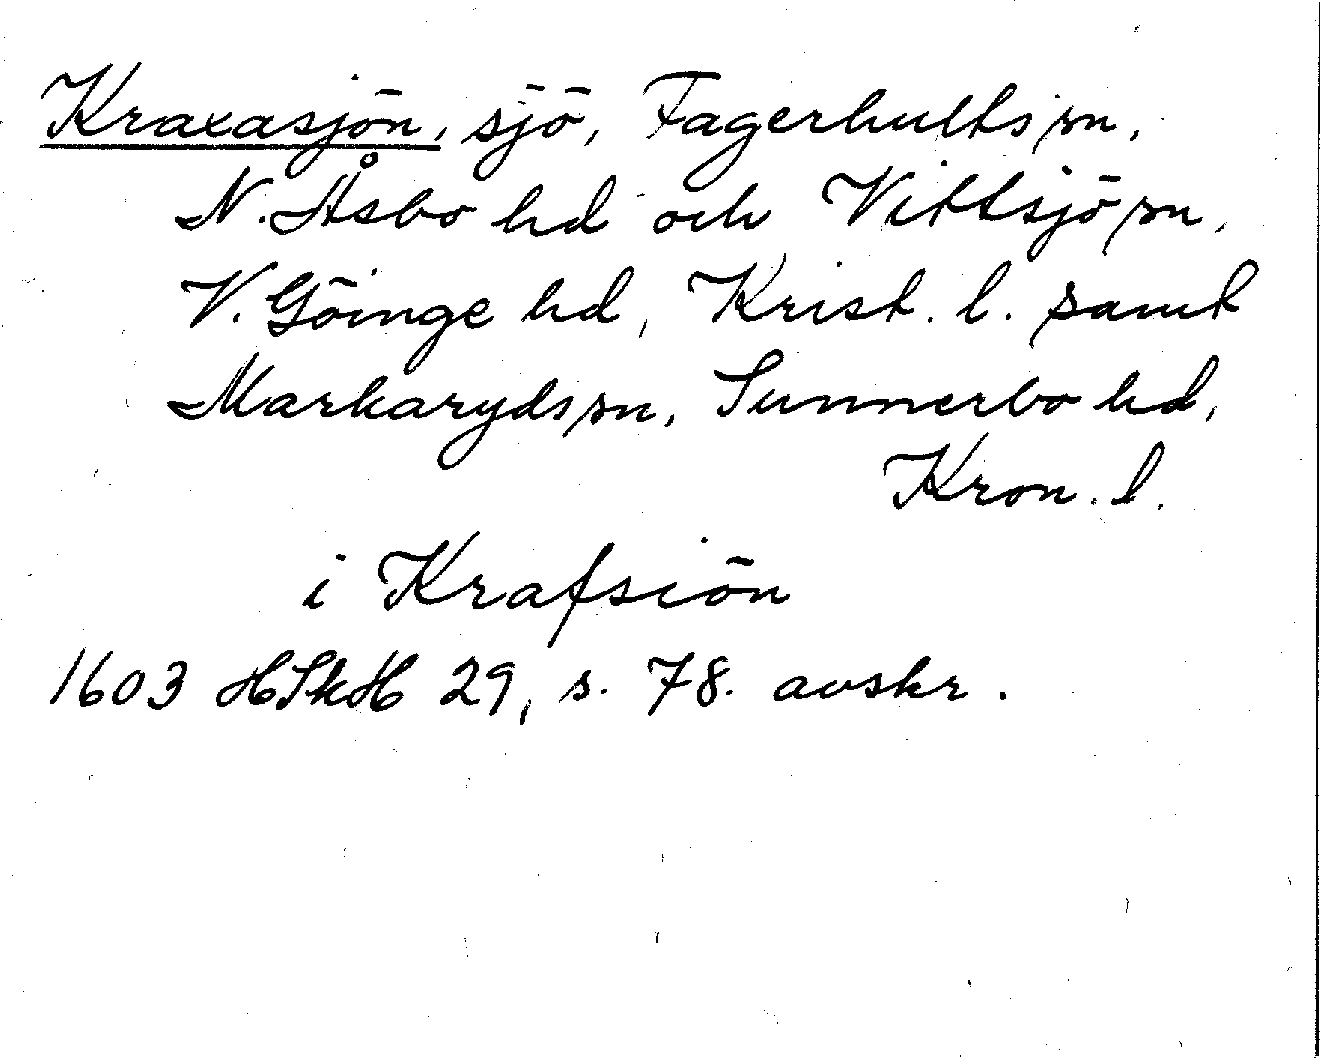 Kraxasjön, sjö, Fagerhults sn,
N. Åsbo hd och Vittsjö sn,
V. Göinge hd, Krist. l. samt
Markaryds sn, Sunnerbo hd,
Kron. l.
i Krafsiön
1603 HSkH 29, s. 78. avskr.